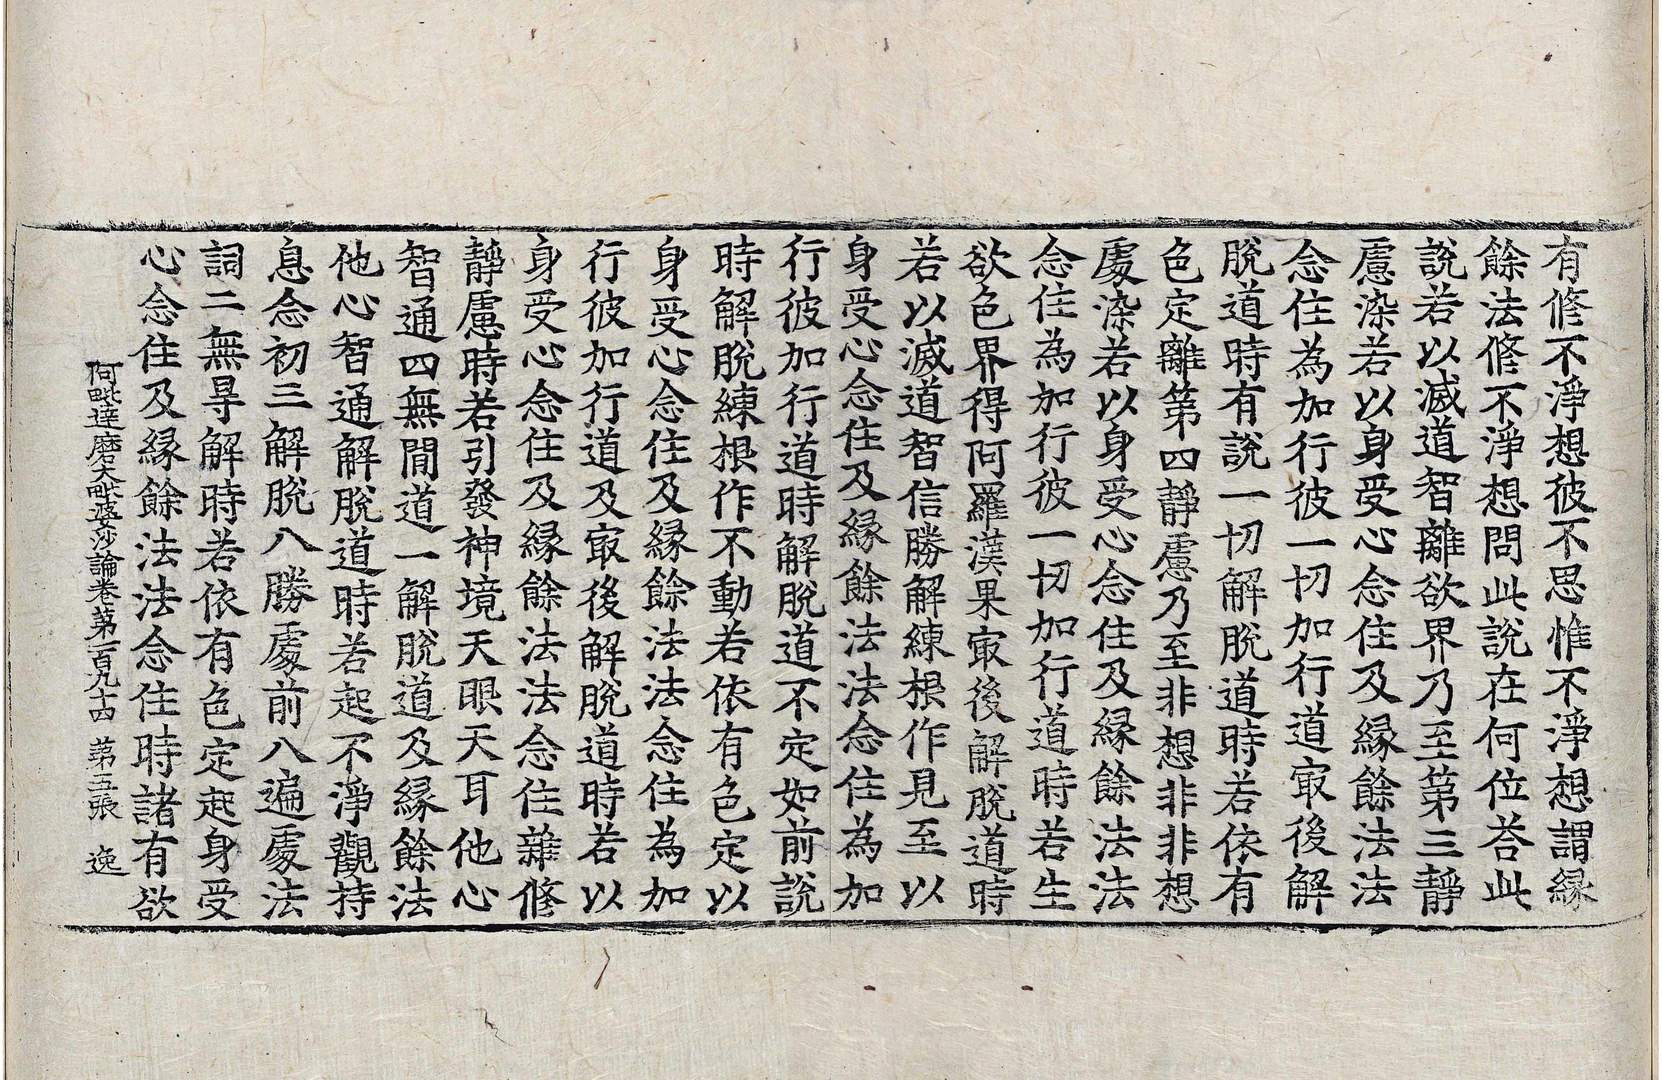 有修不淨想彼不思惟不淨想謂緣
餘法修不淨想問此說在何位荅此
說若以滅道智離欲界乃至第三靜
慮染若以身受心念住及緣餘法法
念住為加行彼一切加行道㝡後解
脫道時有說一切解脫道時若依有
色定離第四靜慮乃至非想非非想
處染若以身受心念住及緣餘法法
念住為加行彼一切加行道時若生
欲色界得阿羅漢果㝡後解脫道時
若以滅道智信勝解練根作見至以
身受心念住及緣餘法法念住為加
行彼加行道時解脫道不定如前說
時解脫練根作不動若依有色定以
身受心念住及緣餘法法念住為加
行彼加行道及㝡後解脫道時若以
身受心念住及緣餘法法念住雜修
靜慮時若引發神境天眼天耳他心
智通四無間道一解脫道及緣餘法
他心智通解脫道時若起不淨觀持
息念初三解脫八勝處前八遍處法
詞二無㝵解時若依有色定起身受
心念住及緣餘法法念住時諸有欲
阿毗達磨大毗婆沙論卷第一百九十四 第五張 逸